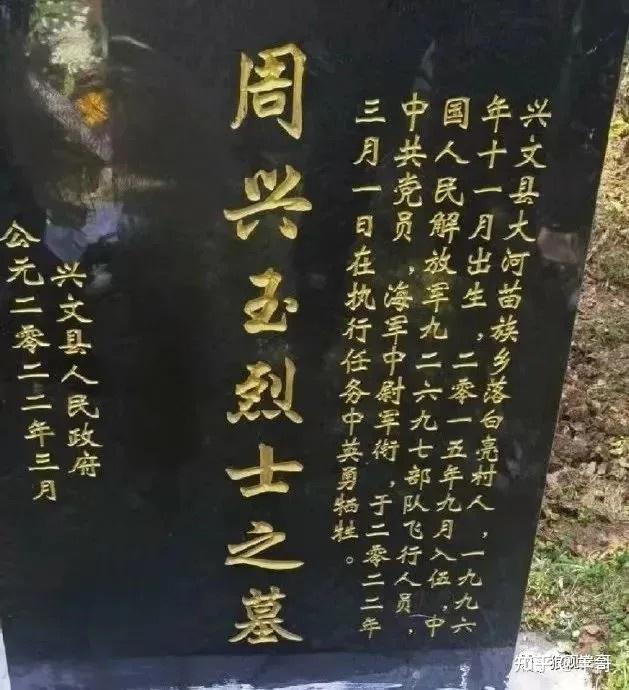 兴文县大河苗族乡落白亮村人，一九九六
年十一月出生，二零一五年九月入伍，中
国人民解放军九二六九七部队飞行人员，
中共党员，海军中尉军衔，于二零二二年
三月一日在执行任务中英勇牺牲。
周兴玉烈士之墓
兴文县人民政府
公元二零二二年三月